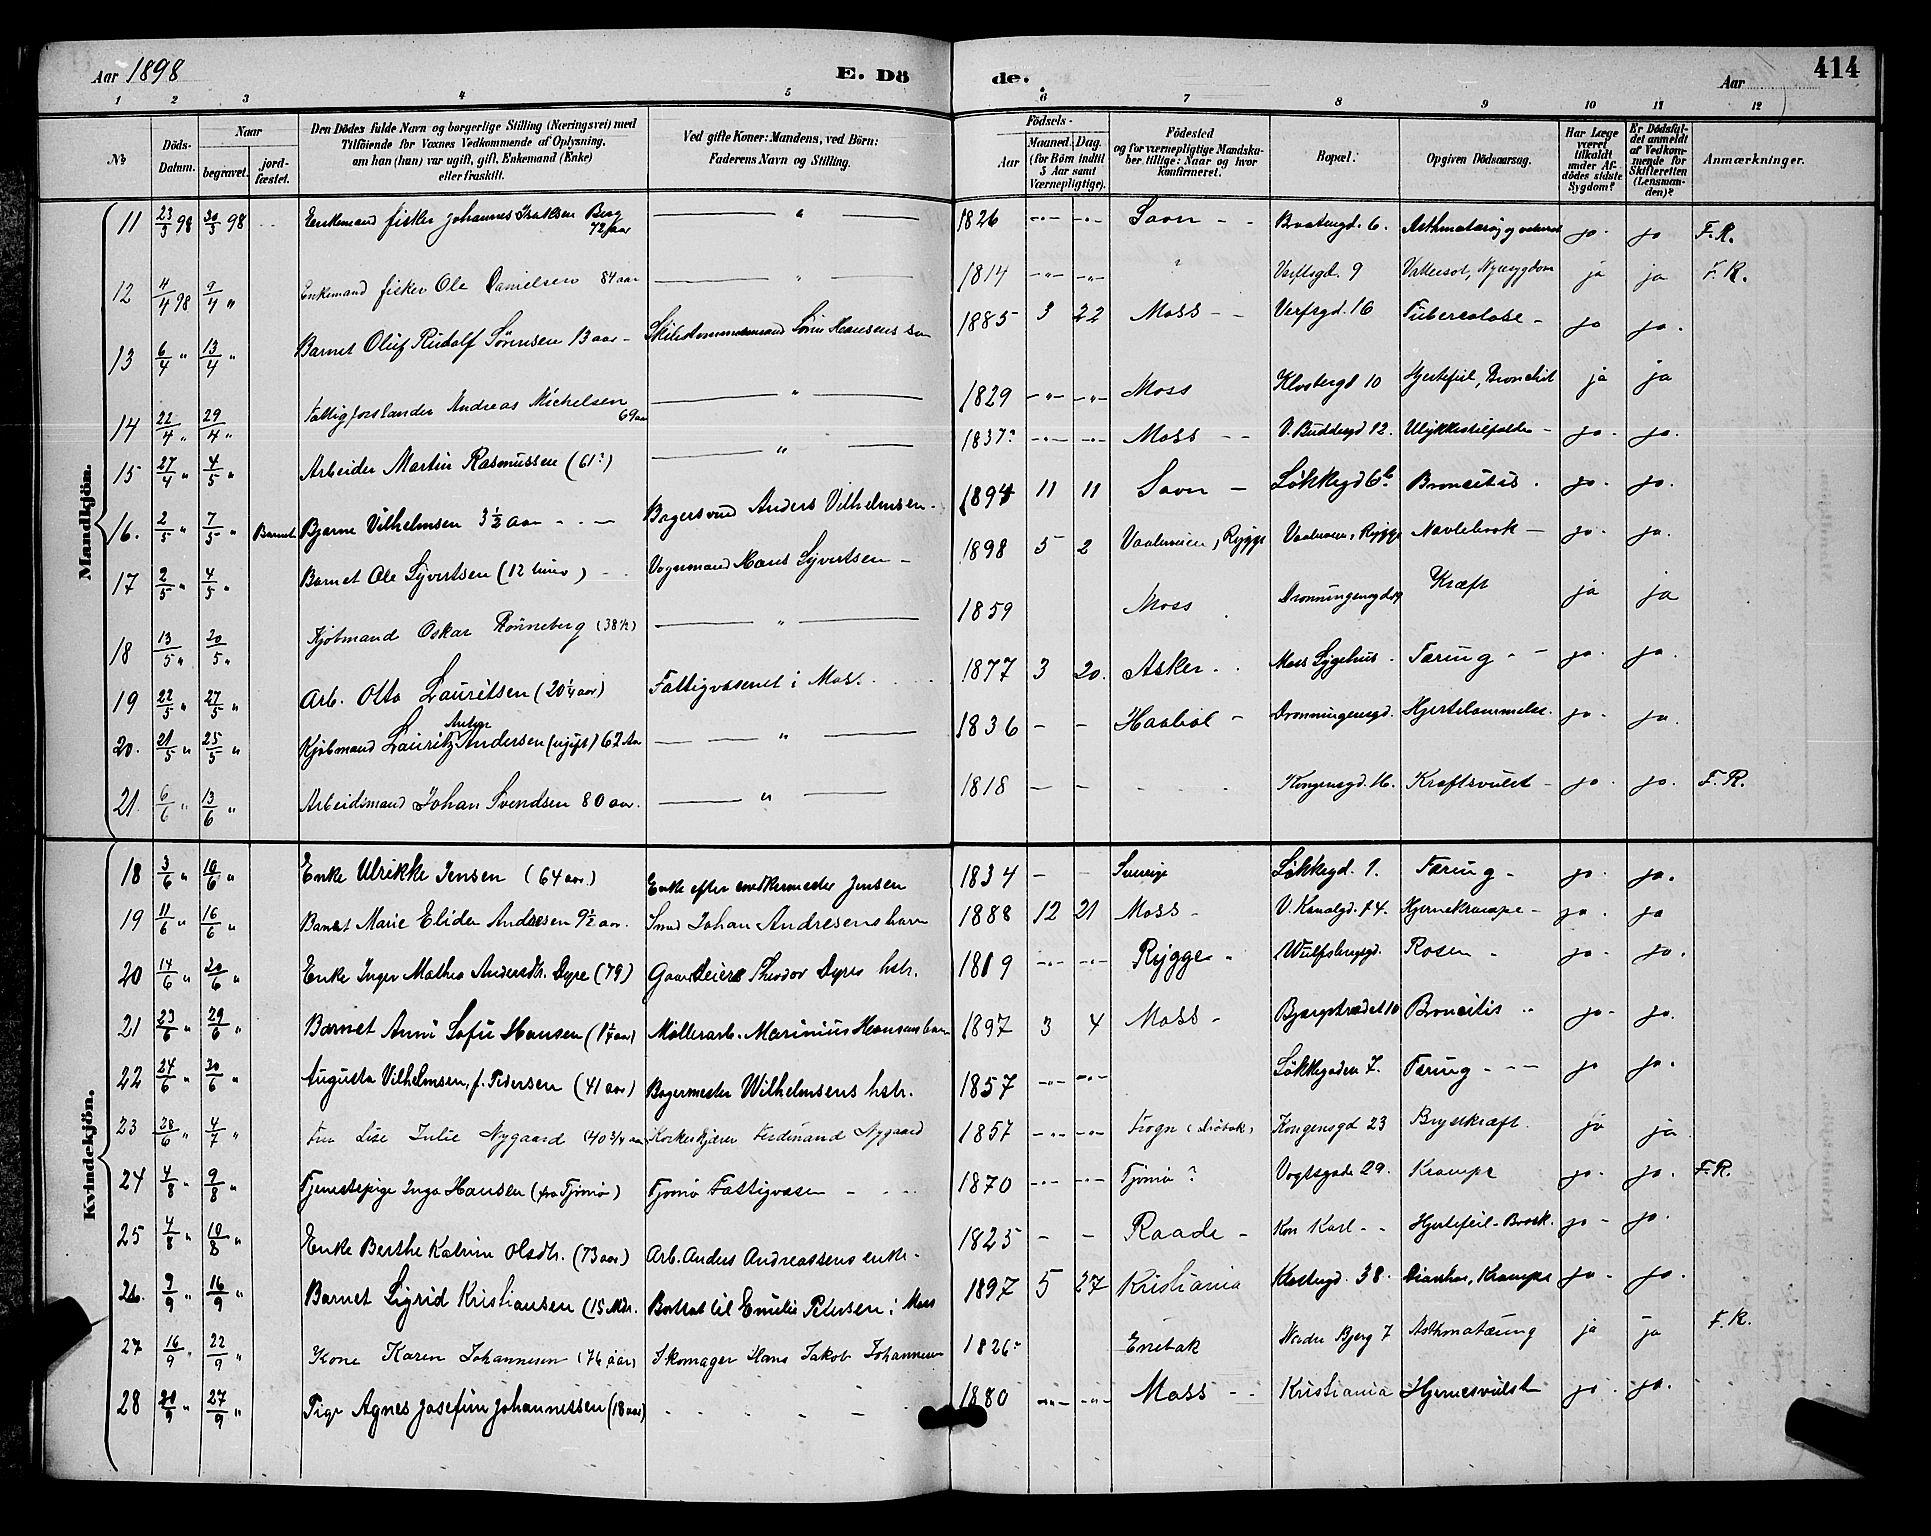 Aar 1898 E. Dö de. Aar 414
1 2 3 4 5 6 7 8 9 10 11 12
No Döds-Datum. Naar begravet. jordfæstet. Den Dödes fulde Navn og borgerlige Stilling (Næringsvei) med Tilföiende for Voxnes Vedkommende af Oplysning, om han (hun) var ugift, gift, Enkemand (Enke) eller fraskilt. Ved gifte Koner: Mandens, ved Börn: Faderens Navn og Stilling. Födsels- Aar Maaned. Dag. (for Börn indtil 5 Aar samt Værnepligtige). Födested og for værnepligtige Mandskaber tillige: Naar og hvor konfirmeret. Bopæl. Opgiven Dödsaarsag. Har Læge været tilkaldt under Afdödes sidste Sygdom? Er Dödsfaldet anmeldt af Vedkommende for Skifteretten (Lensmanden)? Anmærkninger.
Mandkjön.
11 23/3 98 30/3 98 Enkemand fisker Johannes Isaksen Berg 72 aar — " — 1826 -"- -"- Soon - - Braatengd. 6. jo. jo F.R.
12 4/4 98 9/4 " Enkemand fisker Ole Danielsen 84 aar — " — 1814 -"- -"- ? Verftsgd. 9 Vattersot, Nyresygdom ja ja F.R.
13 6/4 " 13/4 " Barnet Oluf Rudolf Sörensen 13 aar - 1885 3 22 Moss - - Verfsgd. 16 Tuberculose - jo jo.
14 22/4 " 29/4 " Fattigforstander Andreas Michelsen 69 aar — " — 1829 -"- -"- Moss Klostergd 10 Hjertefeil, Bronchit ja ja
15 27/4 " 4/5 " Arbeider Martin Rasmussen (61?) — " — 1837? -"- -"- Moss - - V. Buddesgd 12. Ulykkestilfælde - jo. jo.
16. 2/5 " 7/5 " Barnet Bjarne Vilhelmsen 3 1/2 aar - - — Bagersvend Anders Vilhelmsen. 1894 11 11 Soon - Løkkegd 6b Broncitis. jo. jo.
17 2/5 " 4/5 " Barnet Ole Syvertsen (12 timer) - Vognmand Hans Syvertsen - 1898 5 2 Vaaleveien, Rygge Vaaleveien, Rygge Navlebrok - jo. jo.
18 13/5 " 20/5 " Kjøbmand Oskar Rönneberg (38 1/2) — " — 1859 Moss Kræft ja ja
19 22/5 " 27/5 " Arb. Otto Lauritsen (20 1/4 aar) Fattigvæsenet i Moss. 1877 3 20. Asker. . Moss Sygehus. Tæring - - jo. jo.
20. 21/5 " 25/5 " Kjøbmand Lauritz Anton Andersen (ugift) 62 Aar — " — 1836 - - Haabøl - Dronningensgd. Hjertelammelse. jo. jo.
21. 6/6 " 13/6 " Arbeidsmand Johan Svendsen 80 aar. — " — 1818 - - Kongensgd. 16. Kræftsvulst - jo. jo. F.R.
Kvindekjön.
18 3/6 " 10/6 " Enke Ulrikke Jensen (64 aar) Enke efter snedkermester Jensen 1834 - - Sverige Løkkegd. 1. Tæring - jo. jo.
19 11/6 " 16/6 " Barnet Marie Elida Andresen 9 1/2 aar. Smed Johan Andresens barn 1888 12 21 Moss - V. Kanalgd. 74. Hjernekrampe - jo. ja
20 14/6 " 20/6 " Enke Inger Mathea Andersdtr. Dyre (79) Gaardeier Theodor Dyres hstr. 1819 -"- -"- Rygge " Wulfsbergsgd. Rosen " jo. jo.
21 23/6 " 29/6 " Barnet Anna Sofie Hansen (1 1/4 aar) Møllerarb. Marinius Hansens barn 1897 3 4 Moss - Bjergstrædet 10 Broncitis " jo. jo.
22 24/6 " 30/6 " Augusta Vilhelmsen, f. Pedersen (41 aar) Bagermester Wilhelmsens hstr. 1857 -"- -"- Løkkegaden 7. Tæring - - - jo jo.
23 28/6 " 4/7 " Fru Lise Julie Nygaard (40 3/4 aar) Korkeskjærer Ferdinand Nygaard 1857 -"- -"- Frogn (Drøbak) Kongensgd 23 Brystkræft. ja ja
24 4/8 " 9/8 " Tjenestepige Inga Hansen (fra Tjømø) Tjømø Fattigvæsen - - 1870 -"- -"- Tjømø? Vogtsgade 29. Krampe jo. jo. F.R.
25 4/8 " 10/8 " Enke Berthe Katrine Olsdtr. (73 aar) Arb. Anders Andreassens enke - 1825 - - Raade - Hjertefeil - jo - jo.
26. 9/9 " 16/9 " Barnet Sigrid Kristiansen (15 Mdr. Bortsat til Emilie Petersen i Moss 1897 5 27 Kristiania 38. Diarrhoe, Krampe jo - jo.
27 16/9 " 22/9 " Kone Karen Johannesen (76 aar) Skomager Hans Jakob Johannesen 1826? Enebak Nedre Bjerg 7 Asthmatæring ja ja F.R.
28 20/9 " 27/9 " Pige Agnes Josefine Johannessen (18 aar) 1880 -"- -"- Moss - - Kristiania Hjernesvulst jo. jo.